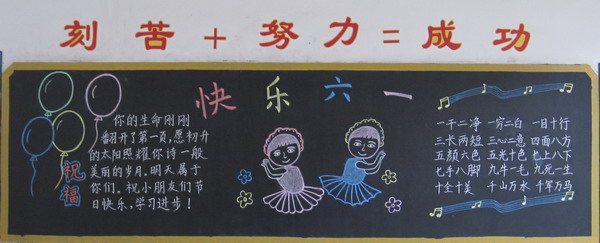 刻苦+努力=成功
快乐六一
你的生命刚刚
翻开了第一页,愿初升
的太阳照耀你诗一般
美丽的岁月。明天属于
你们。祝小朋友们节
日快乐,学习进步!
祝福
一干二净 一穷二白 一目十行
三长两短 三心二意 四面八方
五颜六色 五光十色 七上八下
七手八脚 九牛一毛 九死一生
十全十美 千山万水 千军万马